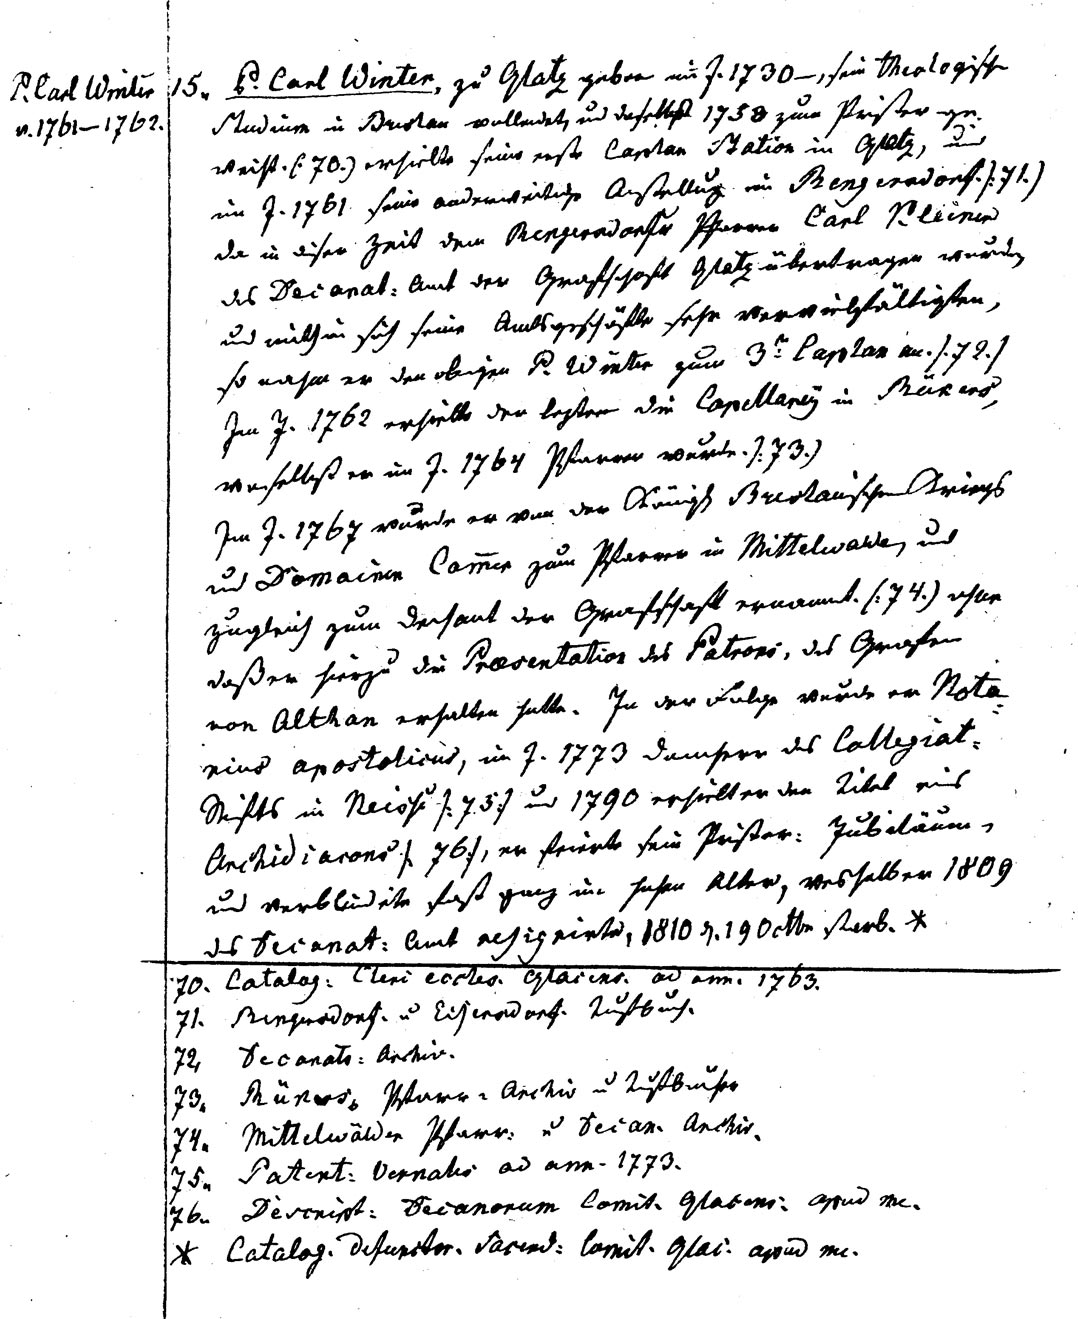 P. Carl Winter
v. 1761–1762.
15. P. Carl Winter, zu Glatz geboren im J. 1730 –, sein theologisch
Studium in Breslau vollendet, und daselbst 1758 zum Prister ge-
weiht. (:70.) erhielte seine erste Caplan Station in Glatz, und
im J. 1761 seine anderweitige Anstellung in Rengersdorf. (:71.)
da in diser Zeit dem Rengersdorfer Pfarrer Carl Kleiner
das Decanat: Amt der Grafschaft Glatz übertragen wurde,
und mithin sich seine Amtsgeschäfte sehr vervielfältigten,
so nahm er den obigen P. Winter zum 3n Caplan an. (:72.)
Im J. 1762 erhielte der leztere die Capellaney in Rükers,
woselbst er im J. 1764 Pfarrer wurde. (:73.)
Im J. 1767 wurde er von der Königl Breslauischen Kriegs
und Domainen Cam̄er zum Pfarrer in Mittelwalde, und
zugleich zum Dechant der Grafschaft ernannt. (:74.) ohne
daß er hierzu die Præsentation des Patrons, des Grafen
von Althan erhalten hatte. In der Folge wurde er Nota-
rius apostolicus, im J. 1773 Domherr des Collegiat-
Stifts in Neisse (:75:) und 1790 erhielt er den Titel eines
Archidiacons (: 76:), er feierte sein Prister: Jubiläum,
und verblindete fast ganz im hohen Alter, weshalb er 1809
das Decanat: Amt resignirte, 1810 d. 19 Octbr starb. *
70. Catalog: Cleri eccles. Glacens. ad ann. 1763.
71. Rengersdorf. u Eisersdorf. Taufbuch.
72. Decanats: Archiv.
73. Rükers. Pfarr- Archiv u Taufbücher
74. Mittelwälder Pfarr: u Decan. Archiv.
75. Patent: Vernalis ad ann. 1773.
76. Descript: Decanorum Comit. Glacens: apud me.
* Catalog. Defunctor. Sacerd: Comit. Glac. apud me.